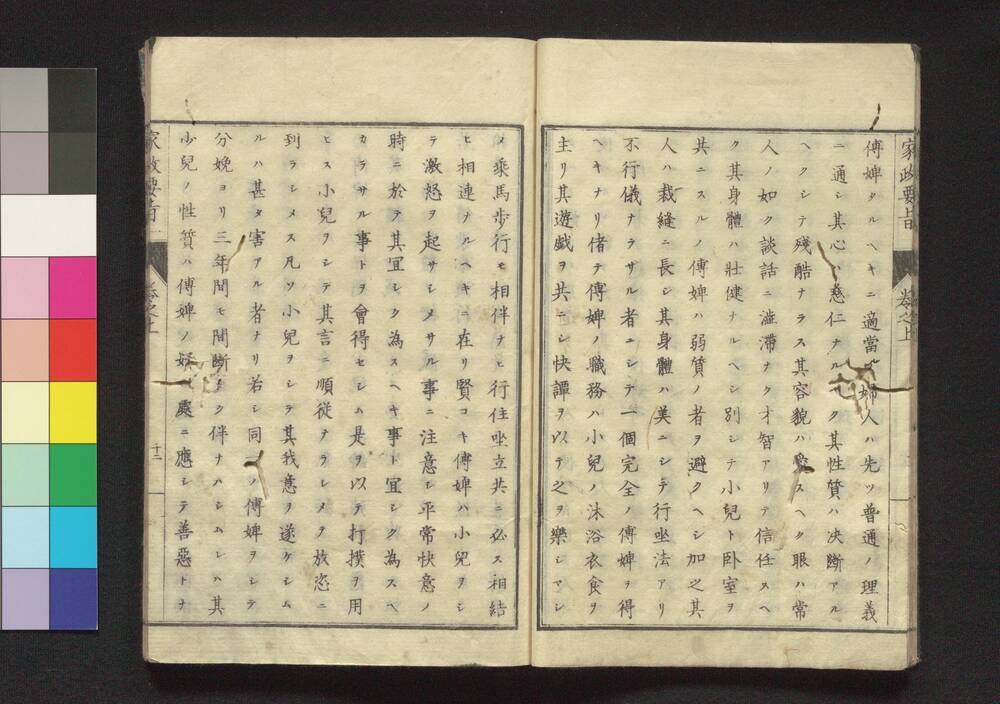 家政要旨 卷之上
傅婢タルヘキニ適當ノ婦人ハ先ツ普通ノ理義
ニ通シ其心ハ慈仁ナルヘク其性質ハ决斷アル
ヘクシテ殘酷ナラス其容貌ハ愛スヘク眼ハ常
人ノ如ク談話ニ澁滯ナク才智アリテ信任スヘ
ク其身體ハ壯健ナルヘシ別シテ小兒ト卧室ヲ
共ニスルノ傅婢ハ弱質ノ者ヲ避クヘシ加之其
人ハ裁縫ニ長シ其身體ハ美ニシテ行坐法アリ
不行儀ナラサル者ニシテ一個完全ノ傅婢ヲ得
ヘキナリ偖テ傅婢ノ職務ハ小兒ノ沐浴衣食ヲ
主リ其遊戯ヲ共ニシ快譚ヲ以テ之ヲ樂シマシ
メ乘馬歩行モ相伴ナヒ行住坐立共ニ必ス相結
ヒ相連ナルヘキニ在リ賢コキ傅婢ハ小兒ヲシ
テ激怒ヲ起サシメサル事ニ注意シ平常快意ノ
時ニ於テ其宜シク為スヘキ事ト宜シク為スヘ
カラサル事トヲ會得セシム是ヲ以テ打撲ヲ用
ヒス小兒ヲシテ其言ニ順從ナラシメヲ放恣ニ
到ラシメス凡ソ小兒ヲシテ其我意ヲ遂ケシム
ルハ甚タ害アル者ナリ若シ同一ノ傅婢ヲシテ
分娩ヨリ三年間モ間斷ナク伴ナハシムレハ其
少兒ノ性質ハ傅婢ノ處ニ應シテ善惡トナ
家政要旨 卷之上 十二